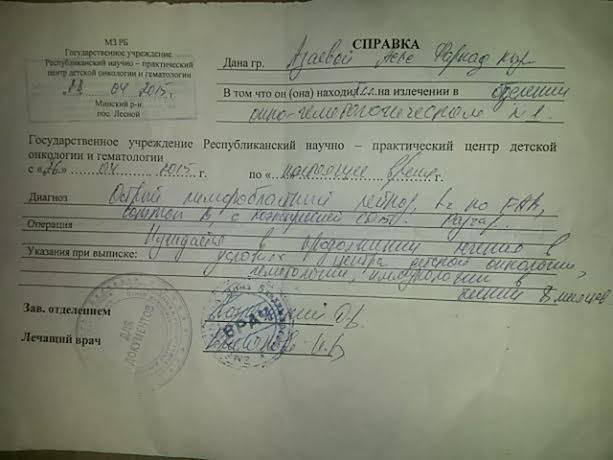 МЗ РБ
Государственное учреждение
Республиканский научно – практический
центр детской онкологии и гематологии
04 2015г.
Минский р-н
пос. Лесной
СПРАВКА
Дана гр. Азаевой
В том что он (она) находится на излечении в отделении
онко-гематологическом № 1.
Государственное учреждение Республиканский научно – практический центр детской
онкологии и гематологии
с «26» 04 2015 г. по « настоящее время г.
Диагноз Острый лимфобластный лейкоз,
Операция
Нуждается в продолжении лечения в
Указания при выписке: условиях центра детской онкологии,
гематологии, иммунологии в
течении 8 месяцев
Зав. отделением
Лечащий врач
ДЛЯ ДОКУМЕНТОВ
ВРАЧ